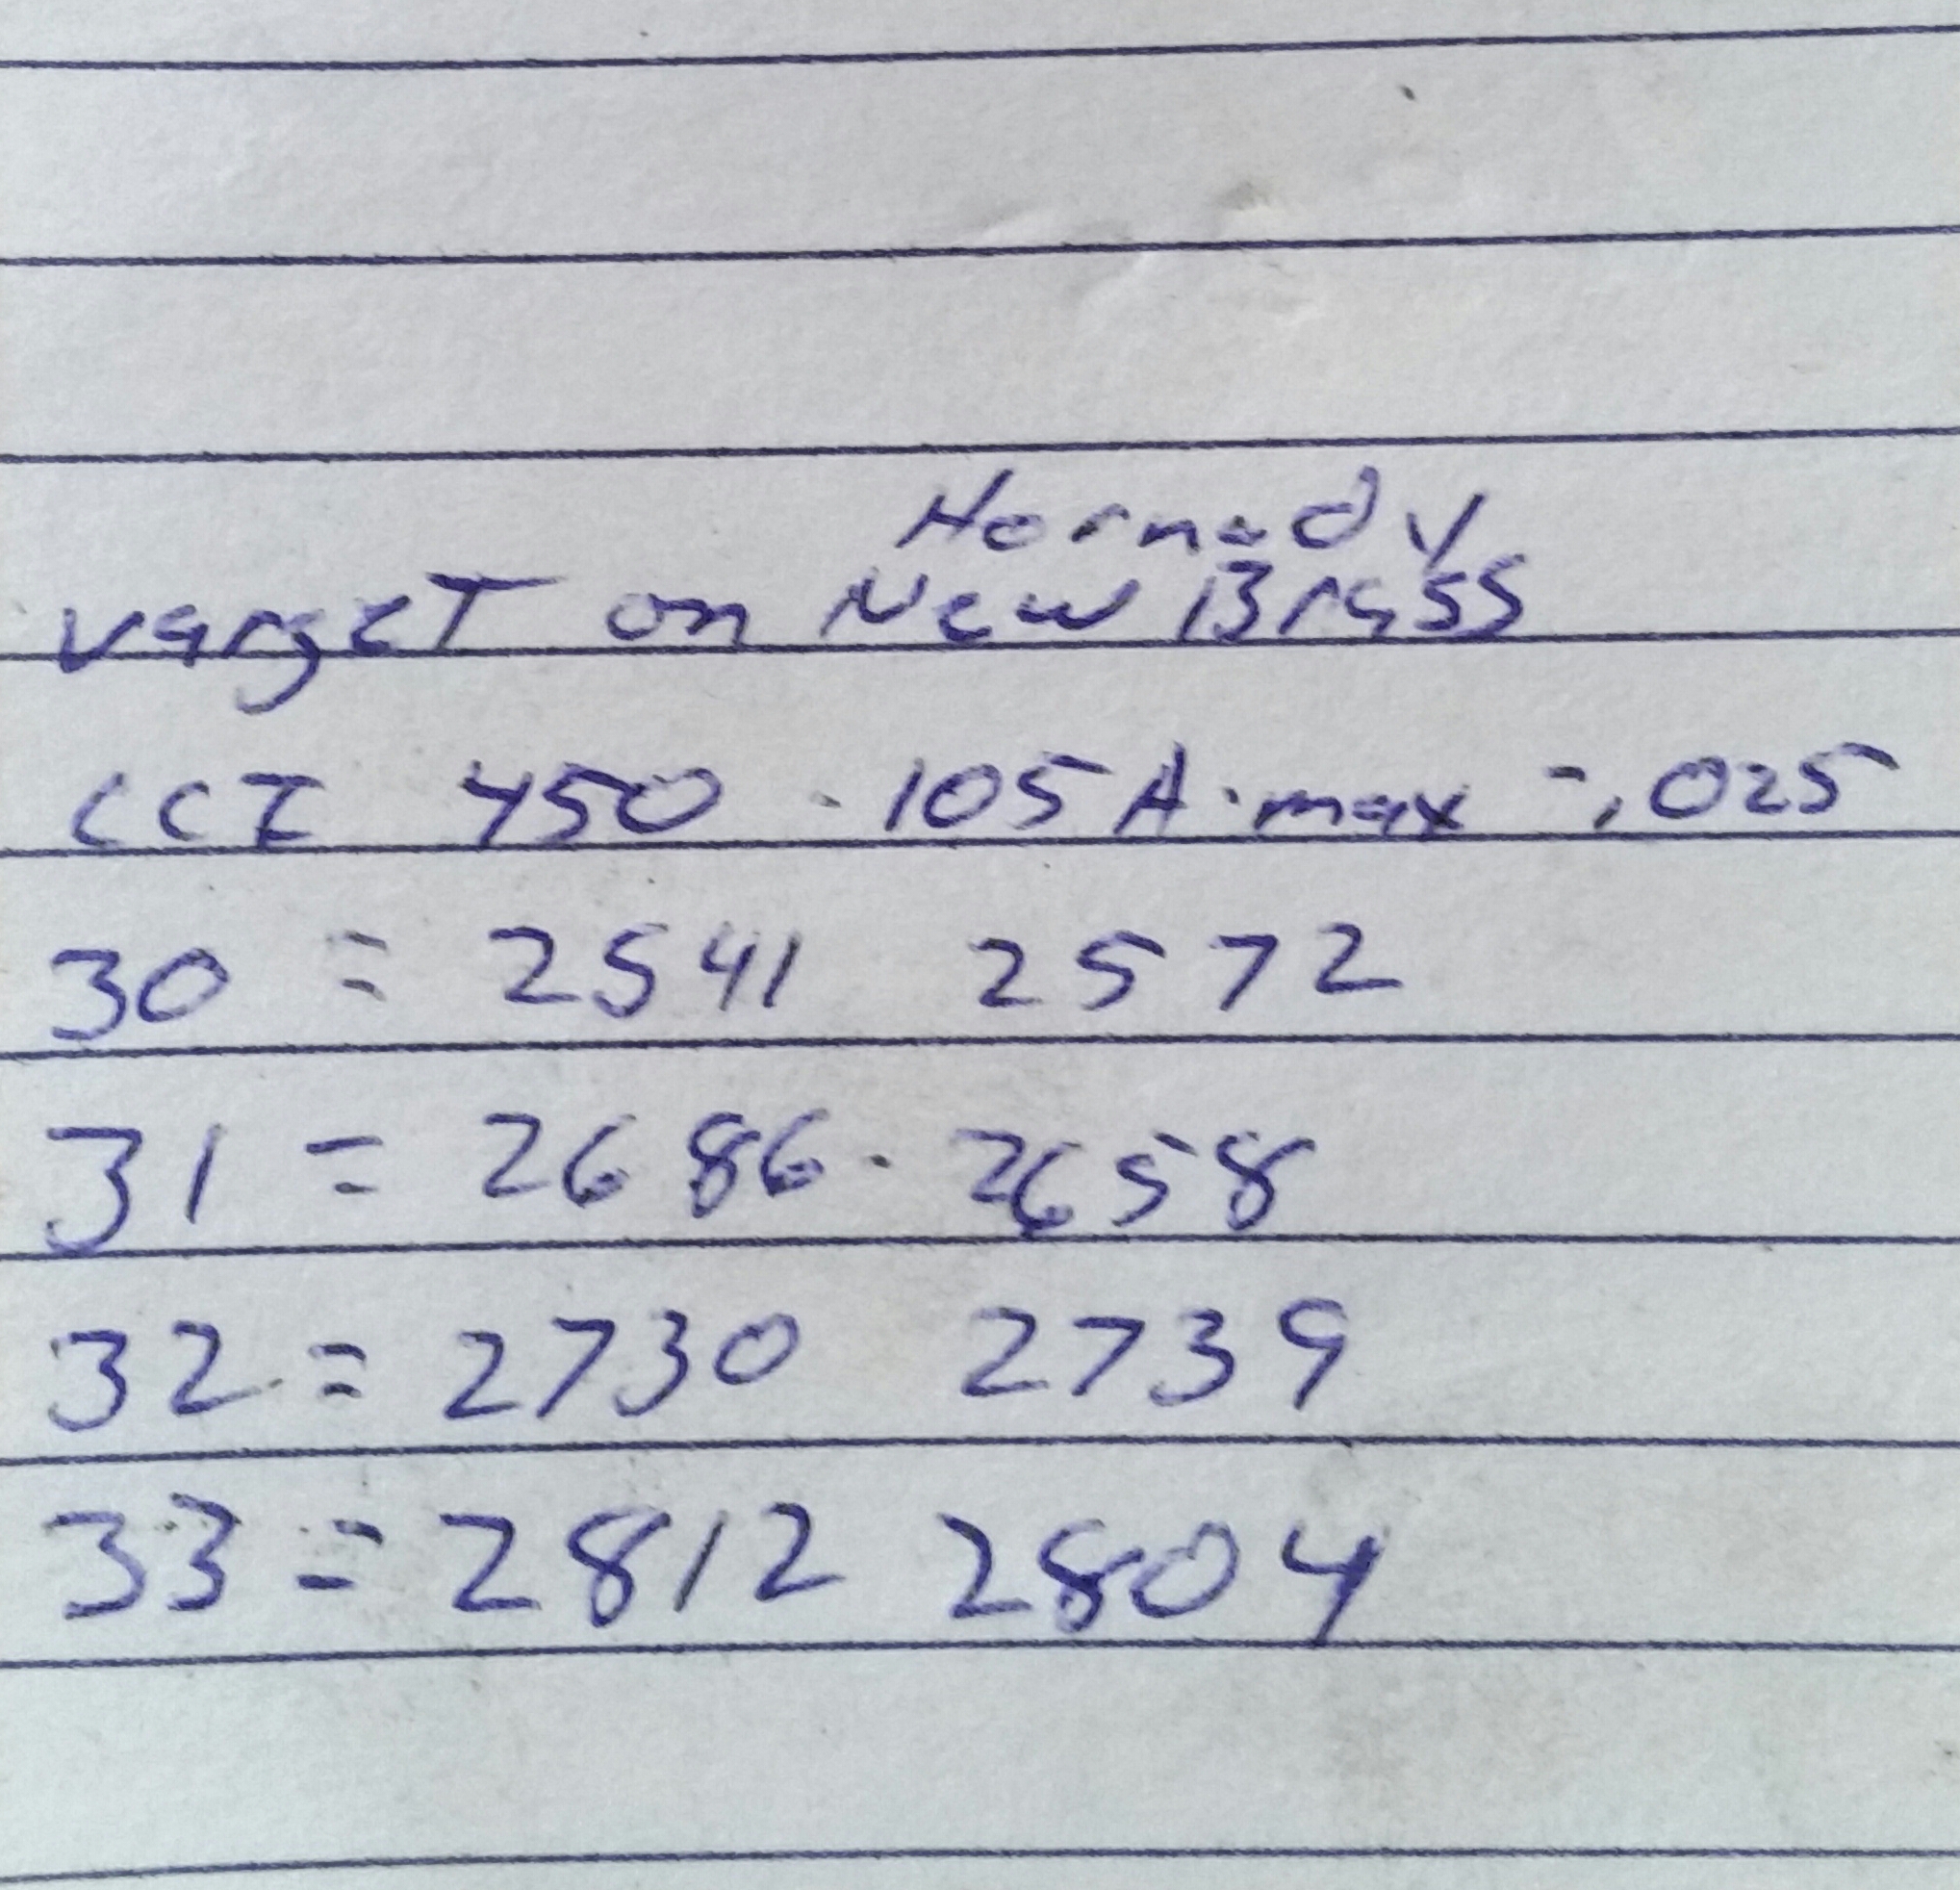 Hornady
varget on New Brass
CCI 450 - 105 A-max -.025
30 = 2541 2572
31 = 2686 - 2658
32 = 2730 2739
33 = 2812 2804